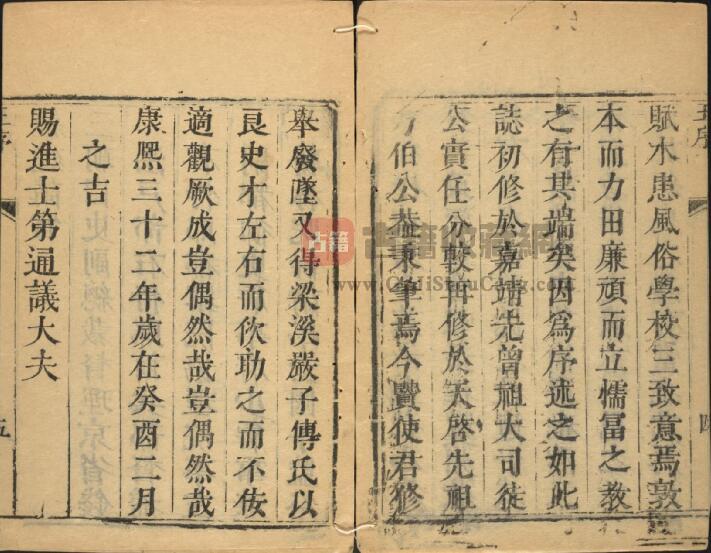 賦水患風俗學校三致意焉敦
本而力田廉頑而立懦富之教
之有其端矣因爲序述之如此
誌初修於嘉靖先曾祖大司徒
公實任分敎再修於天啓先祖
伯公葢秉筆焉今賢使君修
四
舉廢墜又得梁溪嚴子傳氏以
良史才左右而佽助之而不佞
適觀厥成豈偶然哉豈偶然哉
康熙三十二年歲在癸酉二月
之吉
賜進士第通議大夫
王序
五
古籍
GuJiShouCang.com